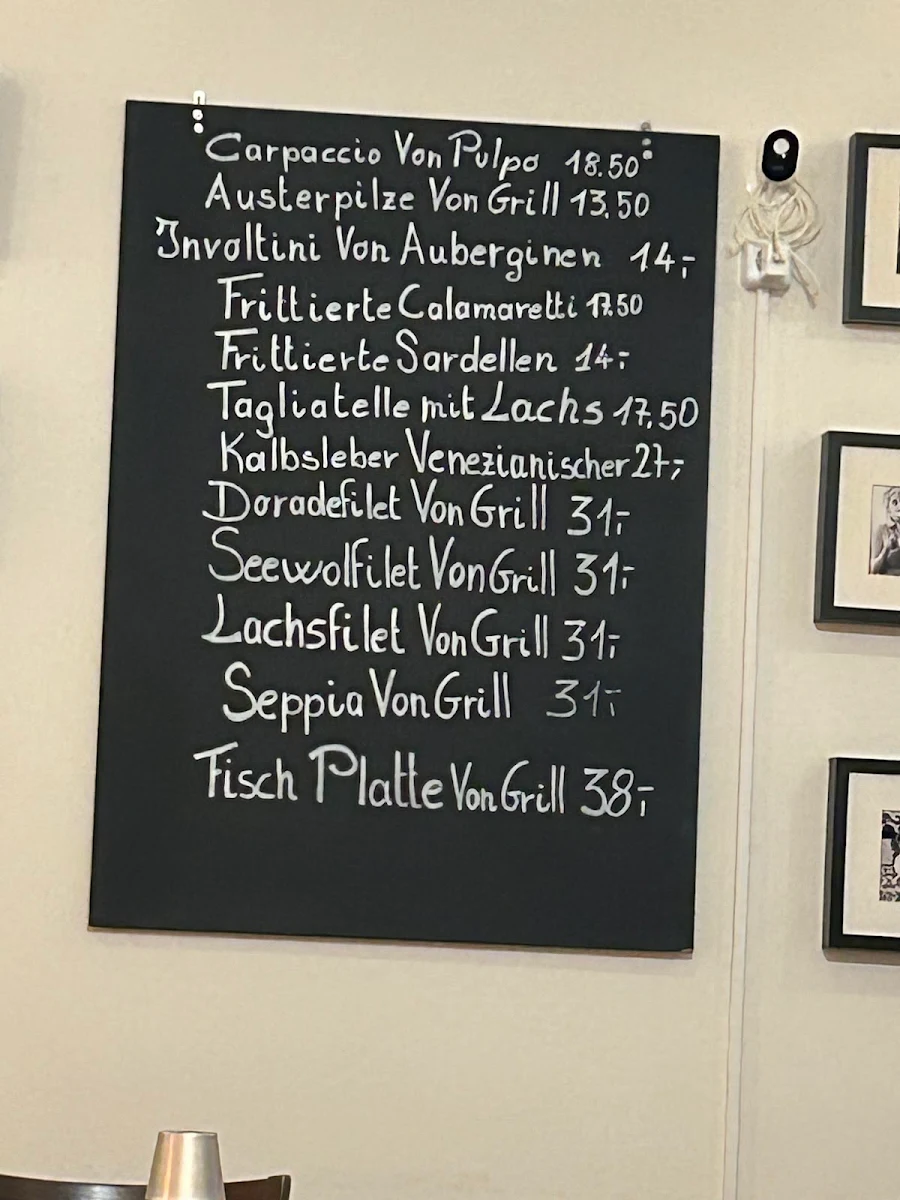 Carpaccio Von Pulpo 18.50
Austerpilze Von Grill 13.50
Involtini Von Auberginen 14,-
Frittierte Calamaretti 17.50
Frittierte Sardellen 14,-
Tagliatelle mit Lachs 17.50
Kalbsleber Venezianischer 27,-
Doradefilet Von Grill 31,-
Seewolfilet Von Grill 31,-
Lachsfilet Von Grill 31,-
Seppia Von Grill 31,-
Fisch Platte Von Grill 38,-